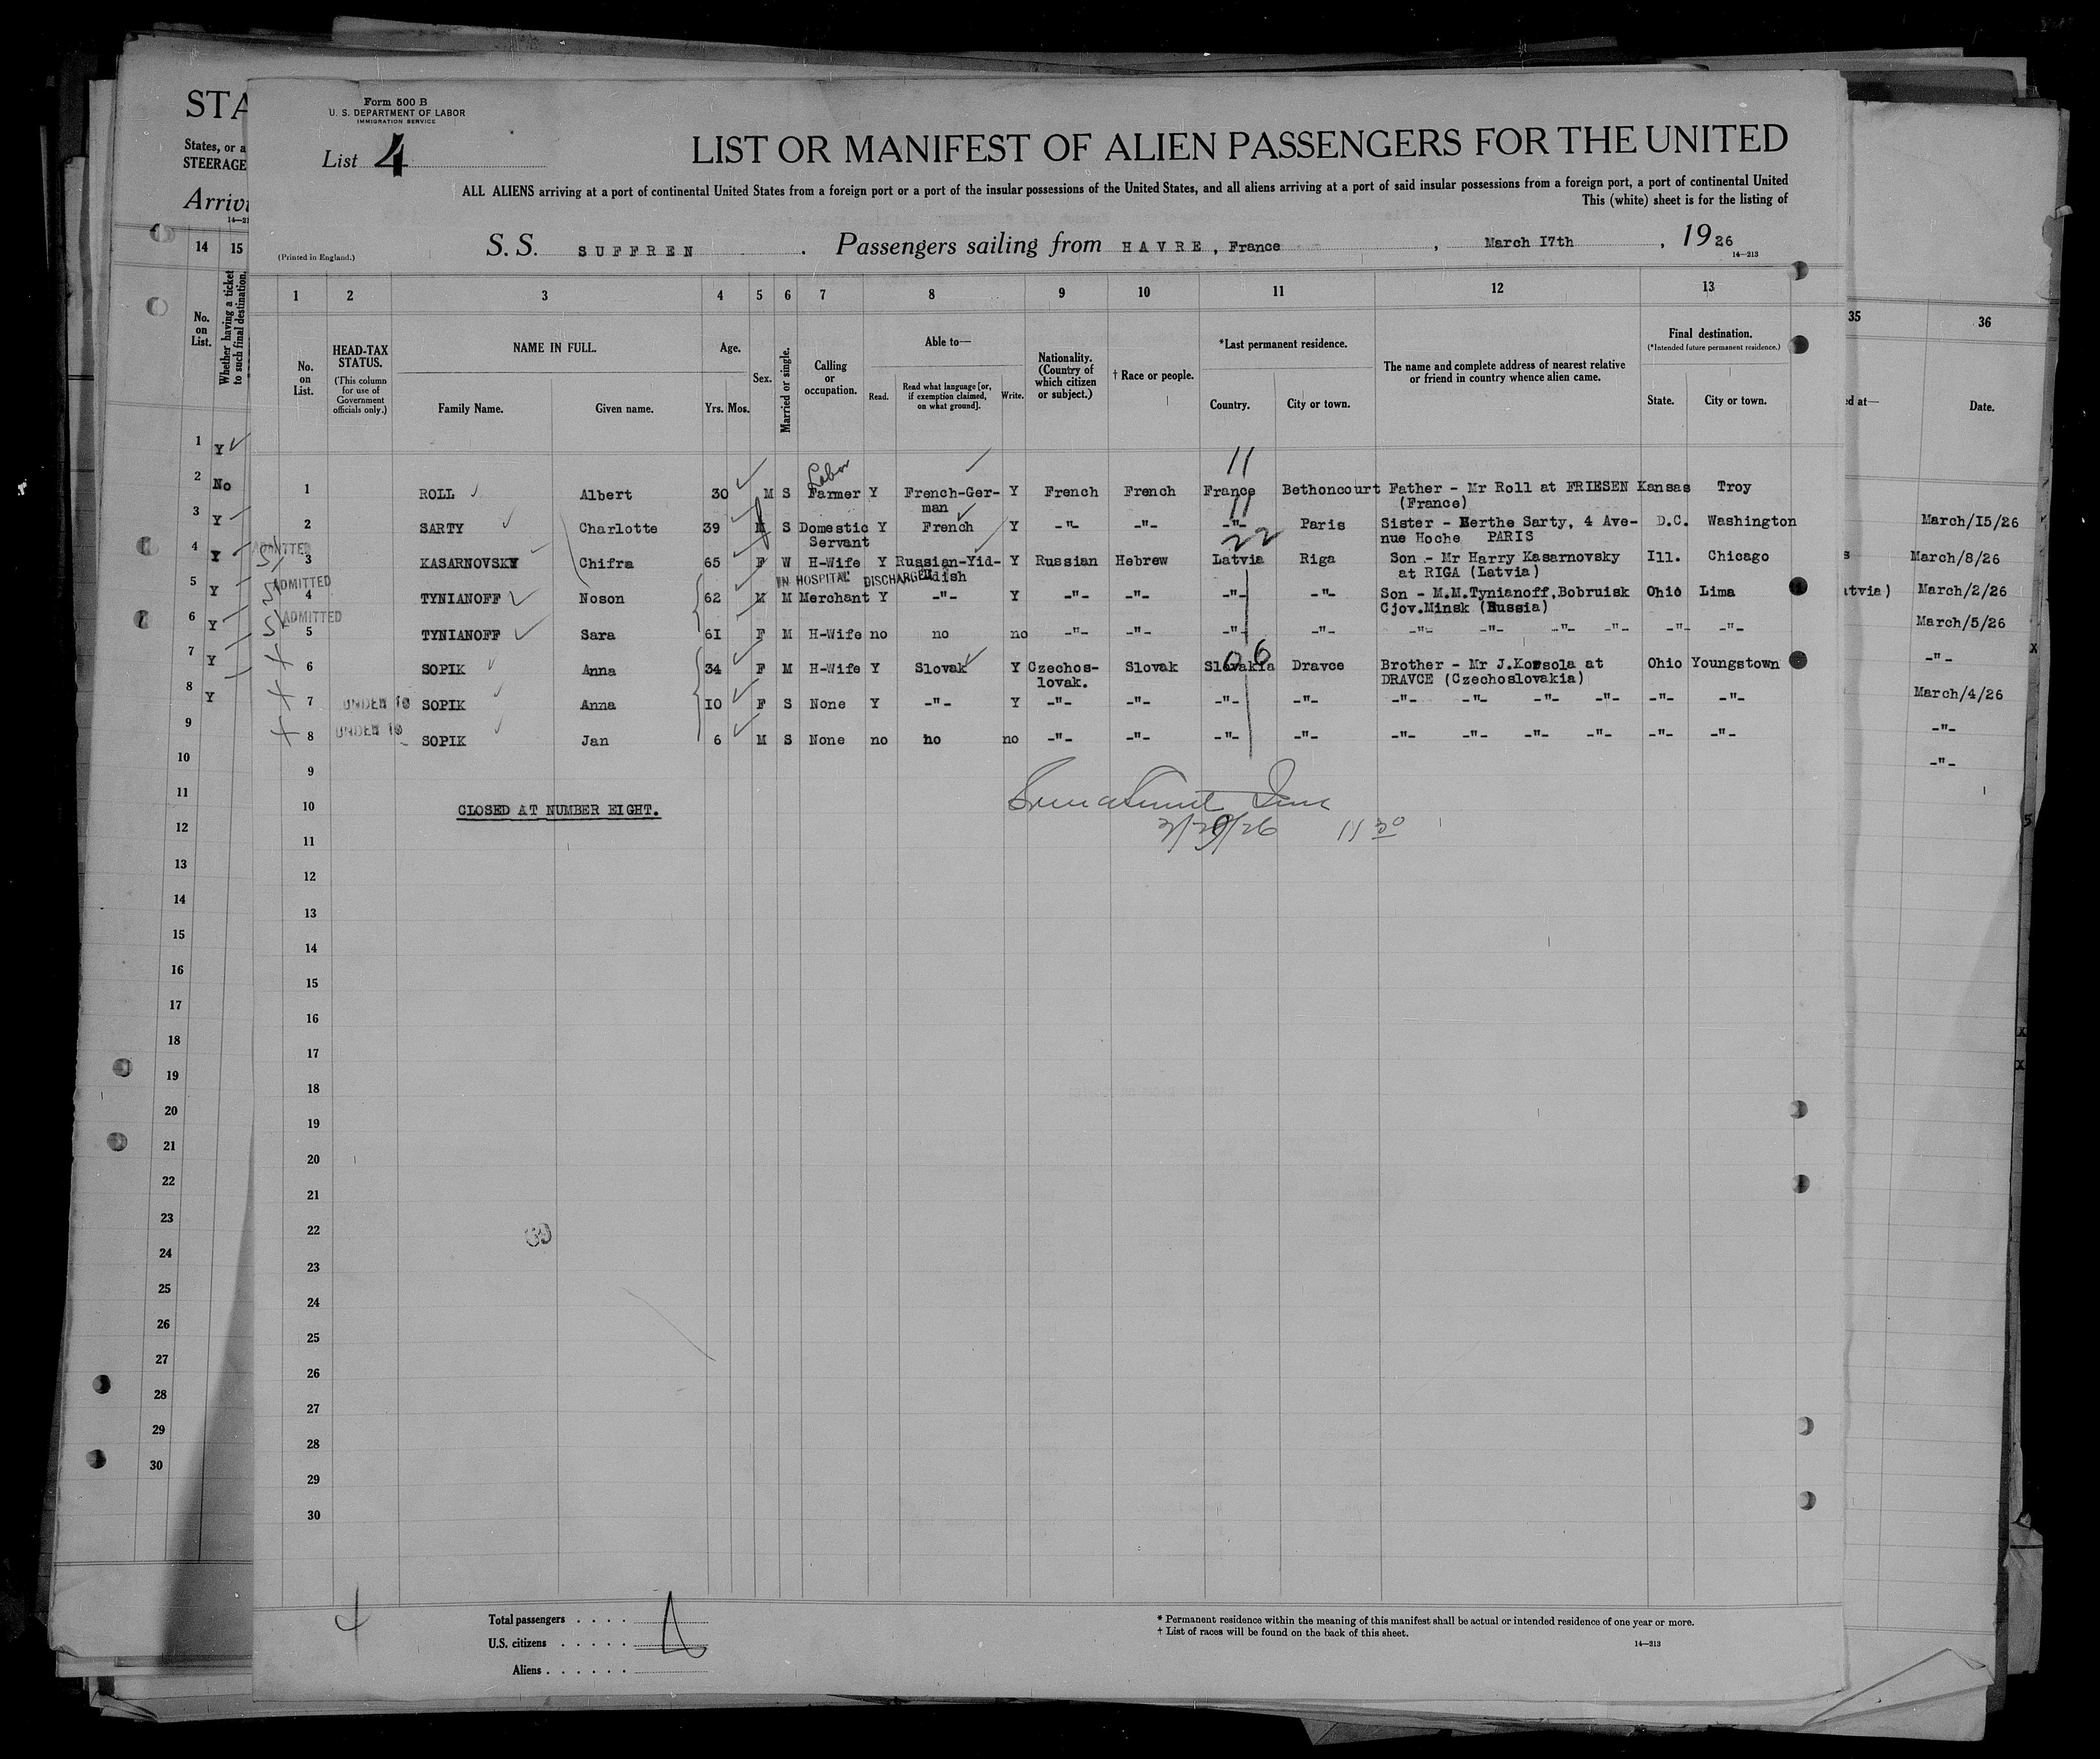 Form 500 B
U. S. DEPARTMENT OF LABOR
IMMIGRATION SERVICE
List 4
LIST OR MANIFEST OF ALIEN PASSENGERS FOR THE UNITED
ALL ALIENS arriving at a port of continental United States from a foreign port or a port of the insular possessions of the United States, and all aliens arriving at a port of said insular possessions from a foreign port, a port of continental United
This (white) sheet is for the listing of
(Printed in England.)
S. S. SUFFREN . Passengers sailing from HAVRE, France , March 17th , 1926
14—213
1 2 3 4 5 6 7 8 9 10 11 12 13
No. on List.
HEAD-TAX STATUS.
(This column for use of Government officials only.)
NAME IN FULL.
Family Name. Given name.
Age.
Yrs. Mos.
Sex.
Married or single.
Calling or occupation.
Able to—
Read.
Read what language [or, if exemption claimed, on what ground].
Write.
Nationality. (Country of which citizen or subject.)
† Race or people.
*Last permanent residence.
Country. City or town.
The name and complete address of nearest relative or friend in country whence alien came.
Final destination.
(*Intended future permanent residence.)
State. City or town.
Labor 11
1 ROLL Albert 30 M S Farmer Y French-Ger- Y French French France Bethoncourt Father - Mr Roll at FRIESEN Kansas Troy
man (France)
11
2 SARTY Charlotte 39 S Domestic Y French Y -"- -"- -"- Paris Sister - Berthe Sarty, 4 Ave- D.C. Washington
Servant nue Hoche PARIS
22
ADMITTED
3 KASARNOVSKY Chifra 65 F W H-Wife Y Russian-Yid- Y Russian Hebrew Latvia Riga Son - Mr Harry Kasarnovsky Ill. Chicago
IN HOSPITAL DISCHARGED dish at RIGA (Latvia)
ADMITTED
4 TYNIANOFF Noson 62 M M Merchant Y -"- Y -"- -"- -"- -"- Son - M.M.Tynianoff,Bobruisk Ohio Lima
Cjov.Minsk (Russia)
ADMITTED
5 TYNIANOFF Sara 61 F M H-Wife no no no -"- -"- -"- -"- -"- -"- -"- -"- -"- -"-
06
6 SOPIK Anna 34 F M H-Wife Y Slovak Y Czechos- Slovak Slovakia Dravce Brother - Mr J.Korsola at Ohio Youngstown
lovak. DRAVCE (Czechoslovakia)
7 UNDER 16 SOPIK Anna 10 F S None Y -"- Y -"- -"- -"- -"- -"- -"- -"- -"- -"- -"-
8 UNDER 16 SOPIK Jan 6 M S None no no no -"- -"- -"- -"- -"- -"- -"- -"- -"- -"-
9
10 CLOSED AT NUMBER EIGHT.
11 30
11
12
13
14
15
16
17
18
19
20
21
22
23
24
25
26
27
28
29
30
Total passengers
U.S. citizens
Aliens
* Permanent residence within the meaning of this manifest shall be actual or intended residence of one year or more.
† List of races will be found on the back of this sheet.
14—213
STA
States, or a
STEERAGE
Arriv
14 15
No. on List.
Whether having a ticket to such final destination.
1 Y
2 No
3 Y
4 Y
5 Y
6 Y
7 Y
8 Y
9
10
11
12
13
14
15
16
17
18
19
20
21
22
23
24
25
26
27
28
29
30
35 36
ed at— Date.
March/15/26
s March/8/26
atvia) March/2/26
March/5/26
-"-
March/4/26
-"-
-"-